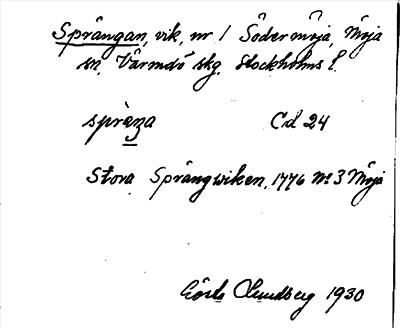 Sprängan, vik, nr 1 Södermöja, Möja
sn, Värmdö skg. Stockholms l.
spràŋa Cd 24
Stora Sprängwiken, 1776 No 3 Möja
Gösta Lundberg 1930